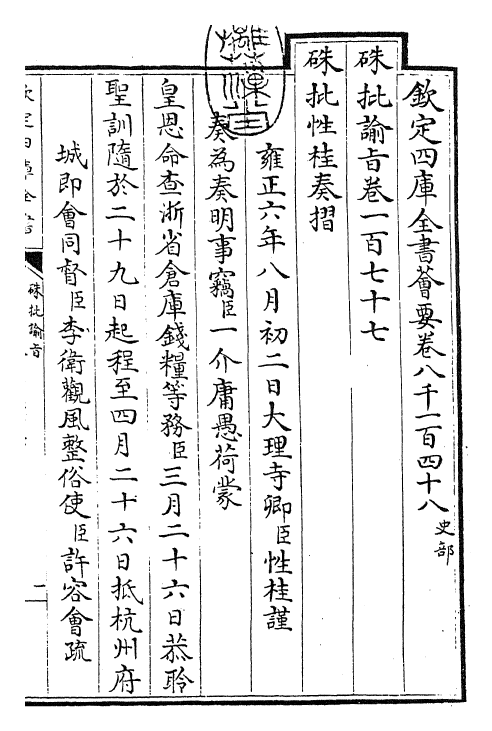 欽定四庫全書薈要卷八千一百四十八 史部
硃批諭旨卷一百七十七
硃批性桂奏摺
雍正六年八月初二日大理寺卿臣性桂謹
奏為奏明事竊臣一介庸愚荷蒙
皇恩命查浙省倉庫錢糧等務臣三月二十六日恭聆
聖訓隨於二十九日起程至四月二十六日抵杭州府
城即會同督臣李衛觀風整俗使臣許容會疏
欽定四庫全書
硃批諭旨